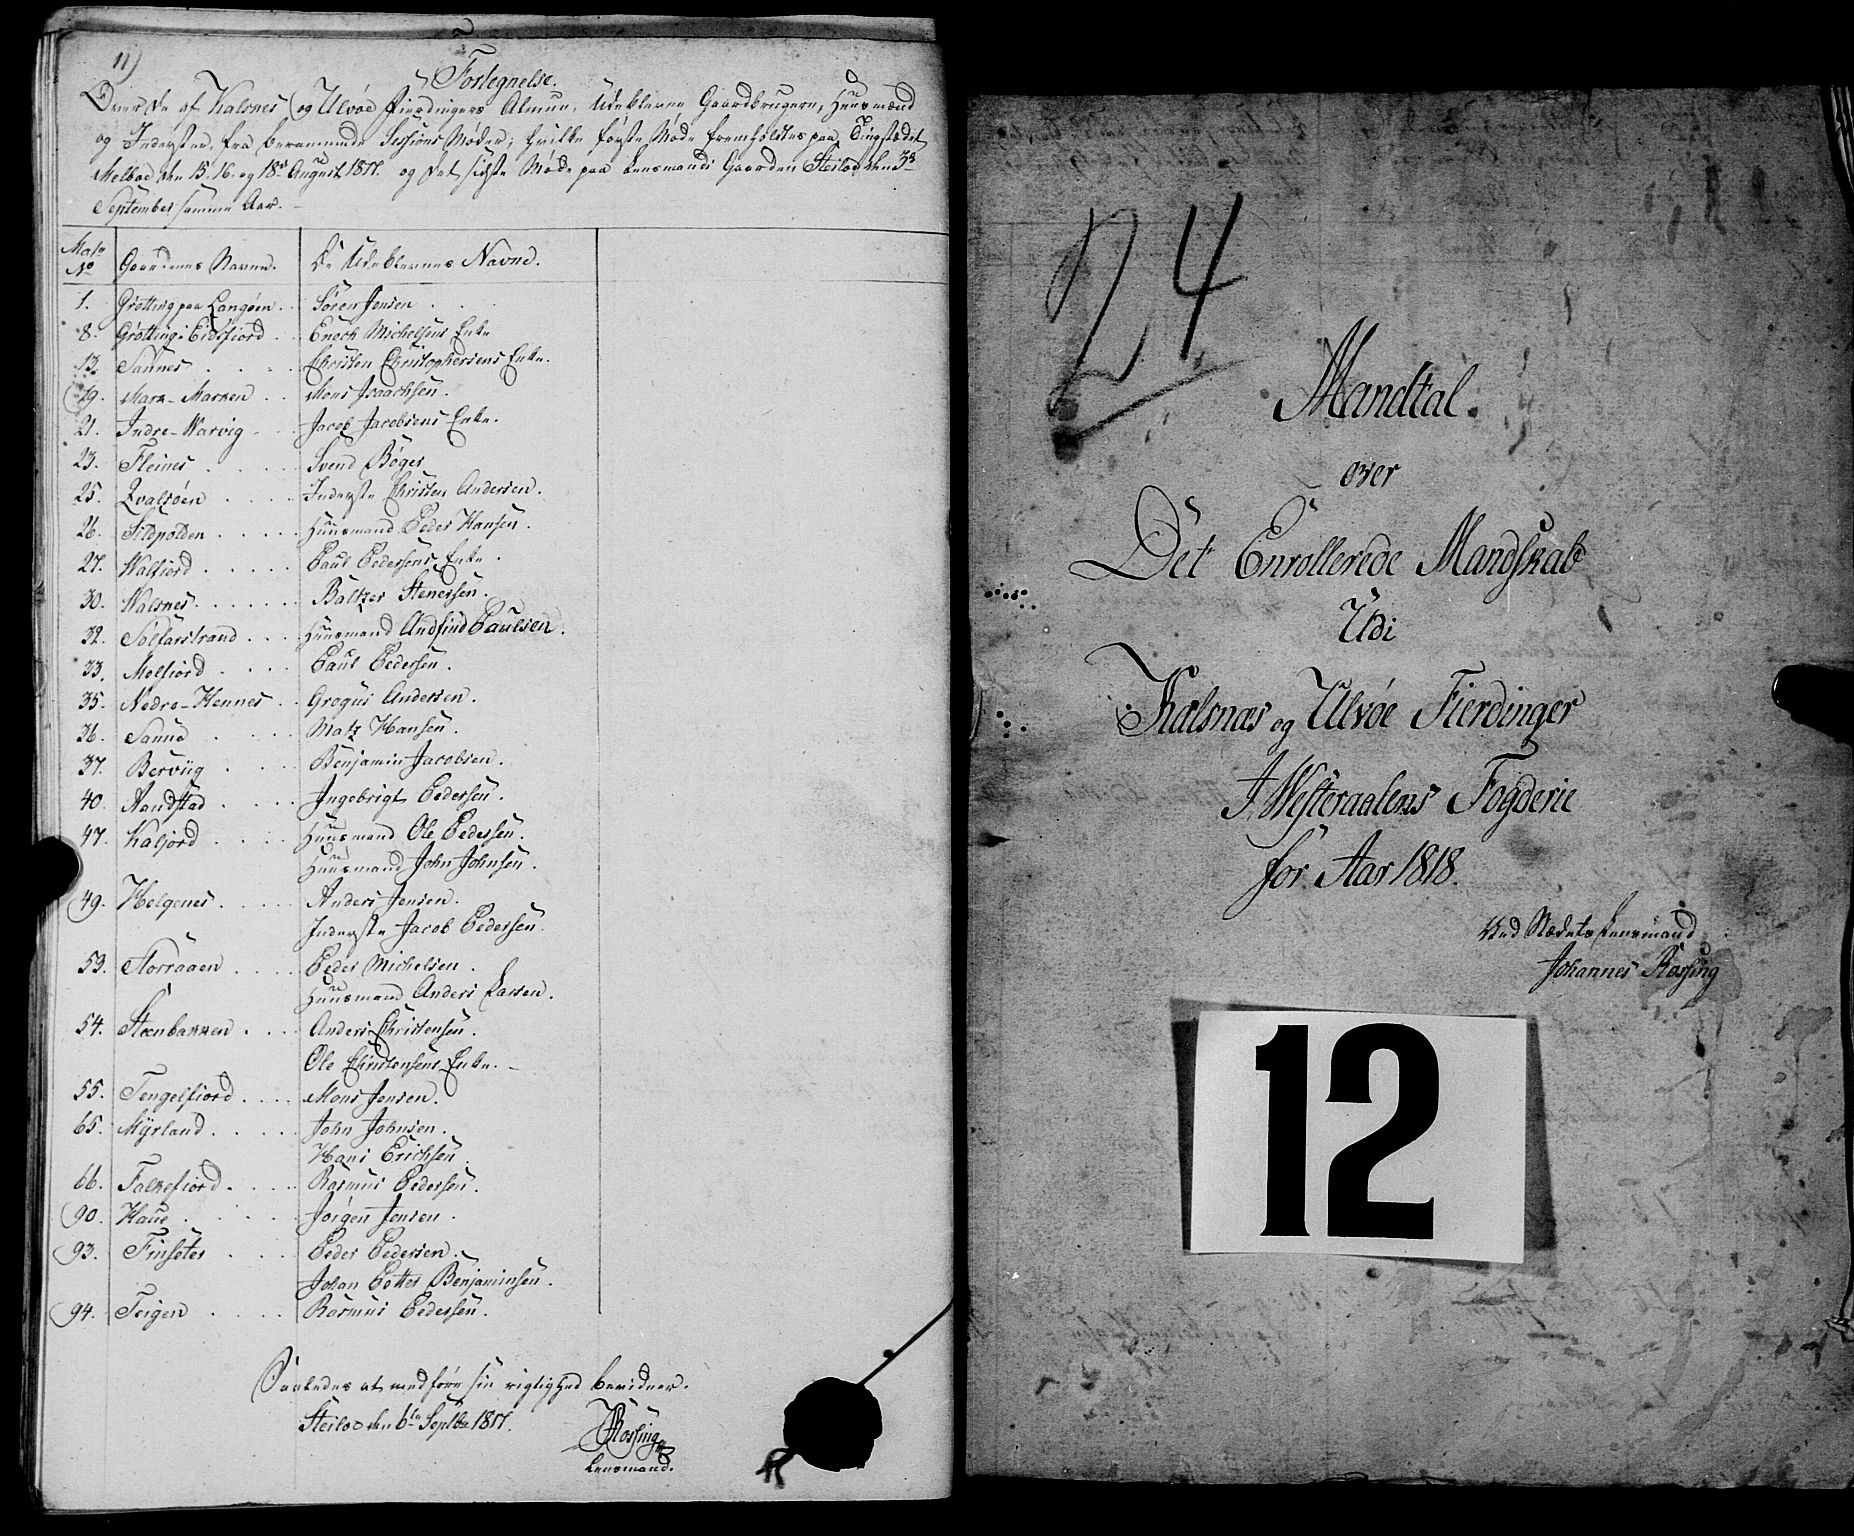 11)
Fortegnelse.
Over de af Kalsnes og Ulvøe Fierdingers Almue, Udeblevne Gaardbrugere, Huusmænd
og Inderster, fra berammede Sessions Møder, hvilke første Møde fremholdtes paa Tingstædet
Melboe den 15. 16. og 18de August 1817. og det sidste Møde paa Lensmands Gaarden Steiloe den 3de
September samme Aar.
Matr No Gaardenes Navne. De Udeblevnes Navne.
1. Grøtting paa Langøen . . Søren Jensen . .
8. Grøtting i Eidsfiord . . Enoch Michelsens Enke
13. Sannes . . . . Christen Christophersens Enke.
19. Mark-Marken . . Mons Isaachsen.
21. Indre-Warvig . . Jacob Jacobsens Enke.
23. Fleines . . . . Svend Bøger
25. Qvalsøen . . . . Inderste Christen Andersen.
26. Sildpolden . . . . Huusmand Peder Hansen.
27. Walfiord . . . . . Paul Pedersens Enke.
30. Kalsnes . . . . . . Baltzer Stenersen.
32. Solfarstrand . . . . Huusmand Andfind Paulsen.
33. Molfiord . . . . Paul Pedersen.
35. Nedre-Hennes . . Gregus Andersen.
36. Sanne . . . . Matz Hansen.
37. Berviig . . . . Benjamin Jacobsen.
40. Aandstad . . . . Ingebrigt Pedersen.
47. Kaljord . . . . . Huusmand Ole Pedersen.
Huusmand John Johnsen.
49. Helgenes . . . . . Anders Jensen.
Inderste Jacob Pedersen.
53. Storraaen . . . . Peder Michelsen.
Huusmand Anders Larsen.
54. Steenbakken . . . . Anders Christensen.
Ole Christensens Enke.
55. Tengelfiord . . . . Mons Jensen.
65. Myrland . . . . . John Johnsen.
Hans Erichsen.
66. Falkefiord . . . . Rasmus Pedersen.
90. Haue . . . . . Jørgen Jensen.
93. Finsæter . . . . Peder Pedersen.
Johan Petter Benjaminsen.
94. Teigen . . . . Rasmus Pedersen.
Saaledes at medføre sin rigtighed bevidner.
Steiloe den 6te Septbr 1817.
JRossing
Lensmand.
24
Mandtal
over
Det Enrollerede Mandskab
Udi
Kalsnæs og Ulvøe Fierdinger
I Westeraalens Fogderie
for Aar 1818.
Ved Stædets Lensmand
Johannes Rossing
12